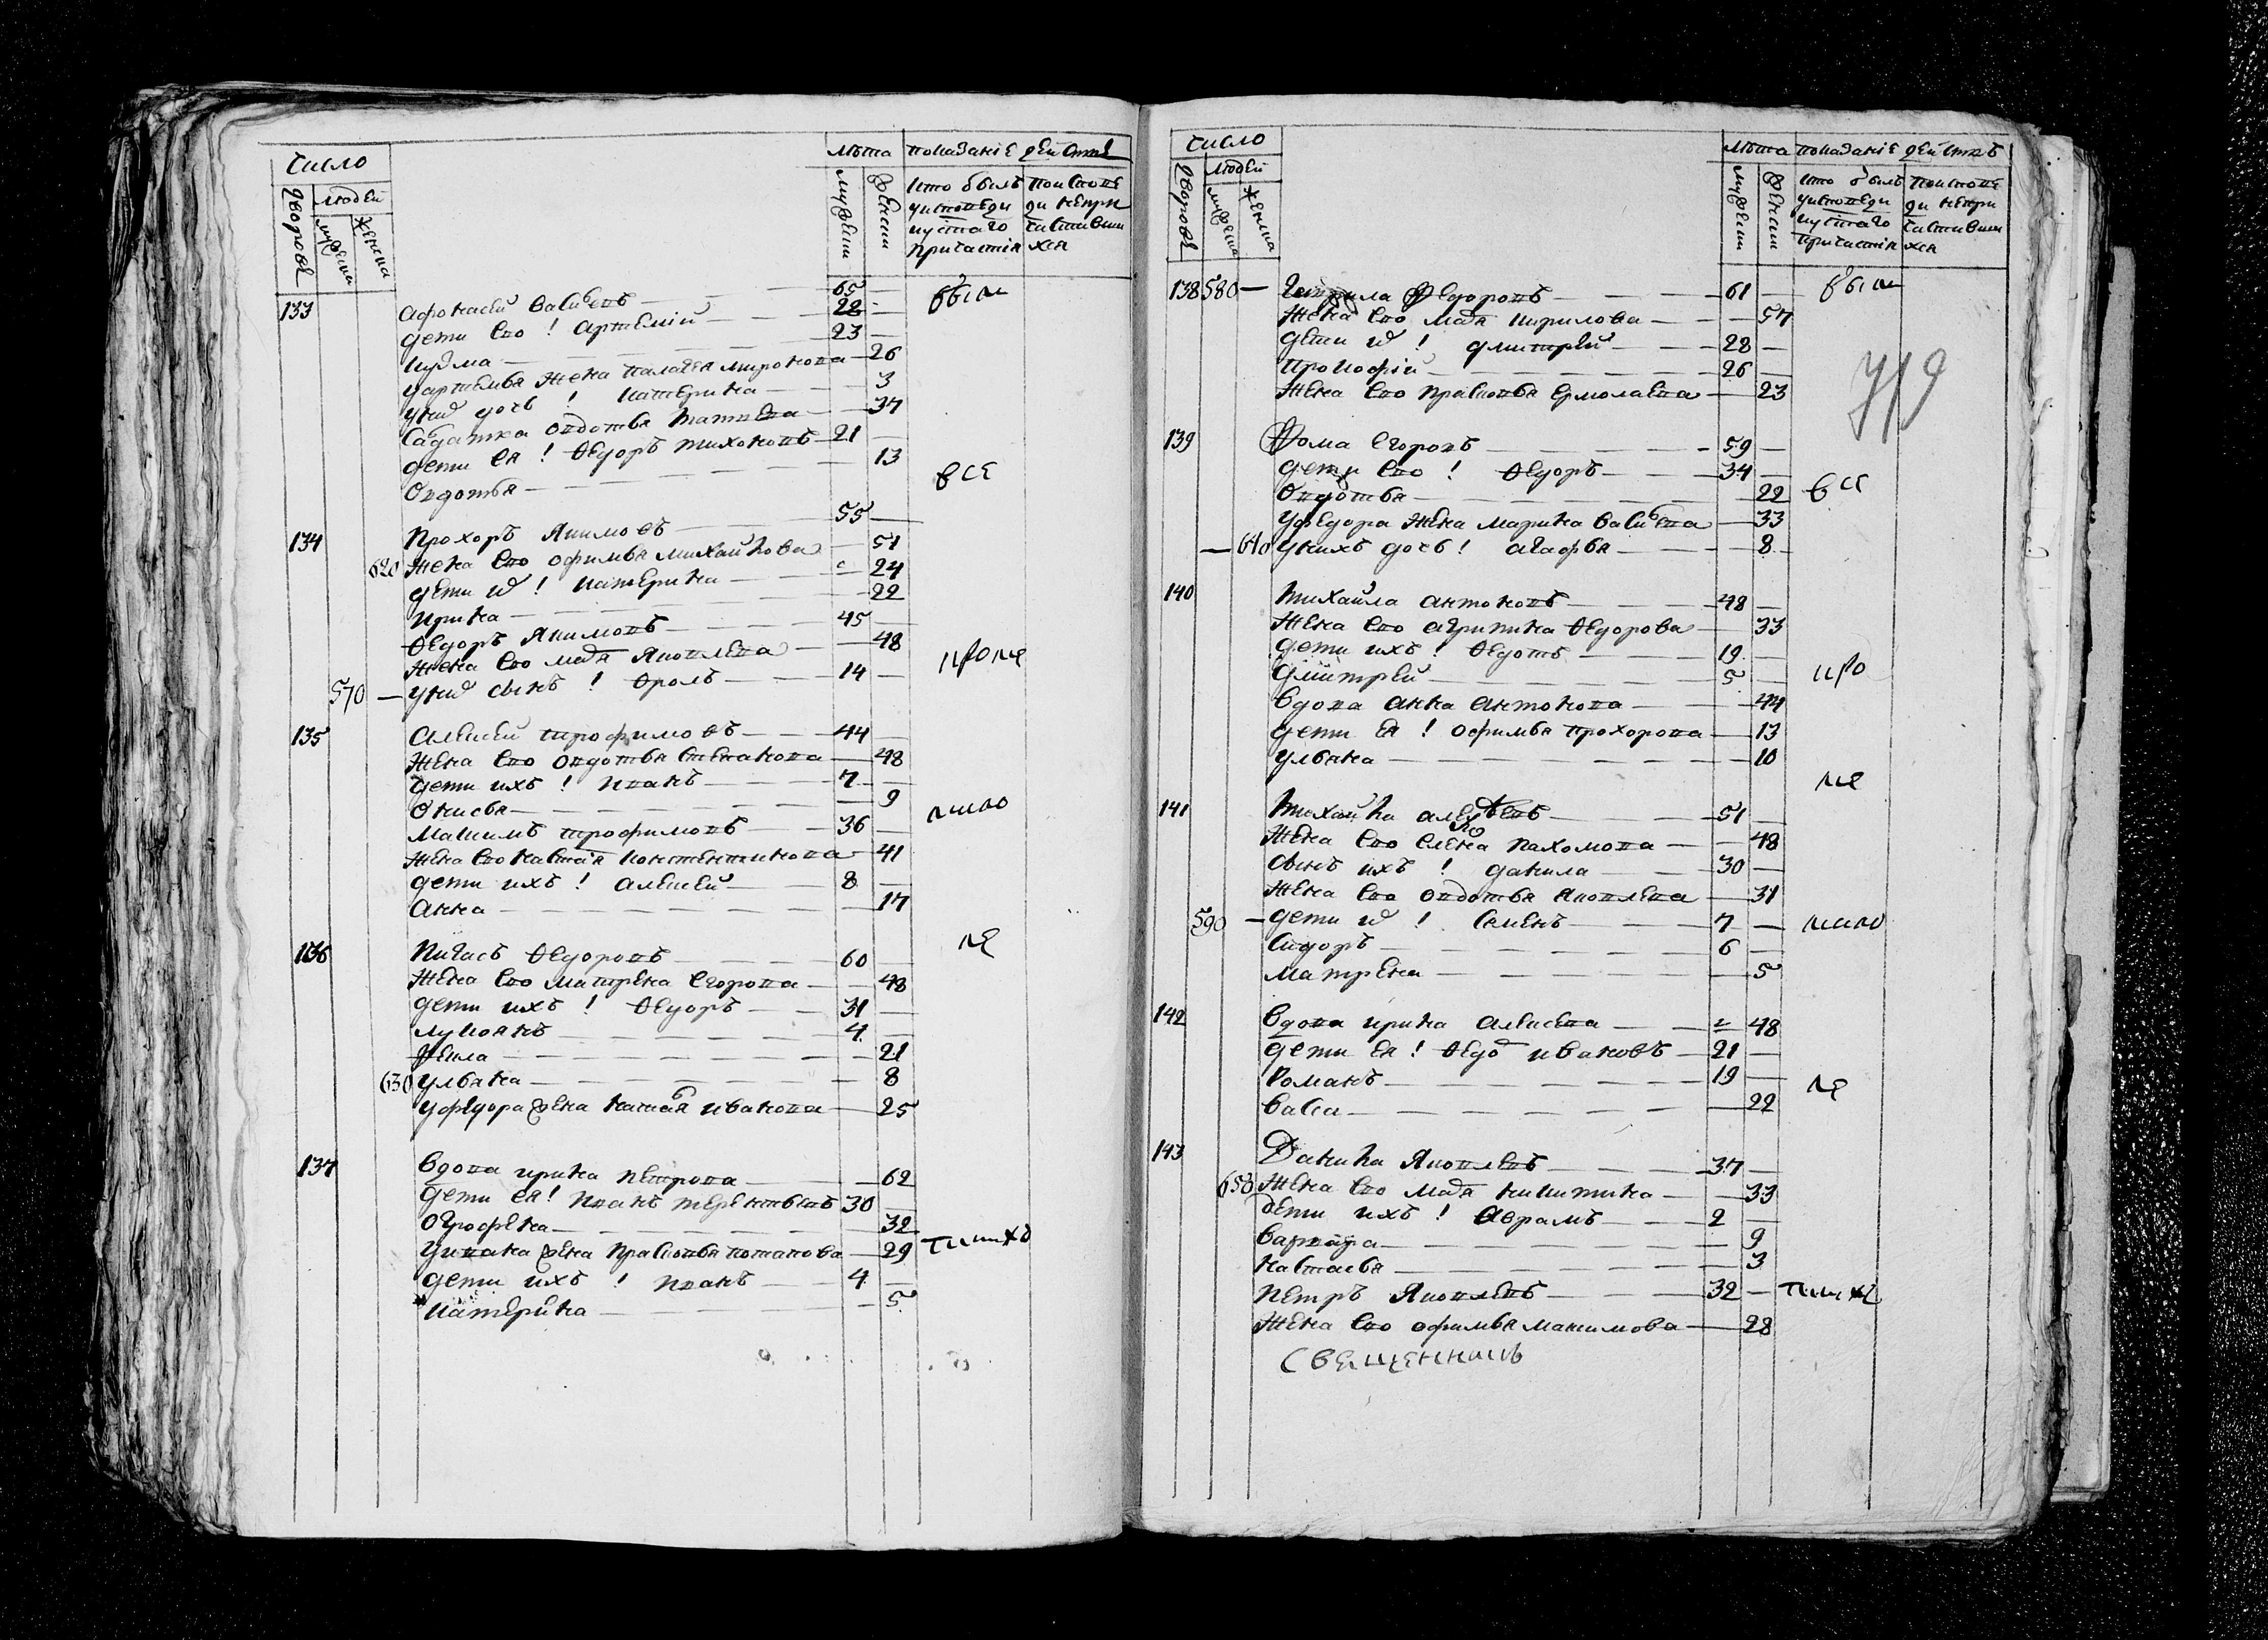 число
дворовъ
людей
мужеска
женска
лѣта
мужеск
женски
показанїе дейстпе
кто былъ у исповеди и у стаго причастїя
по исповеди непричастившихся
133 афонасей васильевъ 65 были
дети его ! артемїй 22
кузма 23
у артемья жена палагея миронова 26
у них дочь ! катерина 3
сватка овдотья матвева 37
дети ея ! ѳедоръ тихоновъ 21
овдотья 13 все
134 прохоръ якимовъ 55
620 жена его офимья михайлова 51
дети их ! катерина 24
ирина 22
ѳедоръ якимовъ 45
жена его марѳа яковлева 48
570 у них сынъ ! ѳролъ 14 кроме
135 алексей трофимовъ 44
жена его овдотья степанова 48
дети ихъ ! иванъ 7
окисья 9
максимъ трофимовъ 36 мало
жена его настася константинова 41
дети ихъ ! алексей 8
анна 17
136 кичасъ ѳедоровъ 60 ле
жена его матрена егорова 48
дети ихъ ! ѳедоръ 31
лукоянъ 4
фекла 21
630 ульяна 8
у федора жена настася иванова 25
137 вдова ирина петрова 62
дети ея ! иванъ терентьевъ 30
огрофена 32
у ивана жена прасковья потапова 29 тнихъ
дети ихъ ! иванъ 4
катерина 5
число
дворовъ
людей
мужеска
женска
лѣта
мужеск
женски
показанїе дейстпъ
кто былъ у исповеди и у стаго причастїя
по исповеди непричастившихся
138 580 гаврила федоровъ 61 были
жена его марѳа кирилова 57
дети их ! дмитрей 28
прокофїй 26
жена его прасковья ермолаева 23
719
139 фома егоровъ 59
дети его ! ѳедоръ 34
овдотья 22 все
у федора жена марина васильева 33
640 у нихъ дочь ! агафья 8
140 михайла антоновъ 48
жена его агрипина ѳедорова 33
дети ихъ ! ѳедотъ 19
дмитрей 5 кро
вдова анна антонова 44
дети ея ! офимья прохорова 13
ульяна 10
ме
141 михайла алексеевъ 51
жена его елена пахомова 48
сынъ ихъ ! данила 30
жена его овдотья яковлева 31
590 дети их ! семенъ 7 мало
сидоръ 6
матрена 5
142 вдова ирина алексева 48
дети ея ! ѳедоръ ивановъ 21
романъ 19 ле
васса 22
143 данила яковлевъ 37
650 жена его марѳа никитина 33
дети ихъ ! аврамъ 2
варвара 9
настасья 3
петръ яковлевъ 32 тнихъ
жена его офимья максимова 28
священникъ